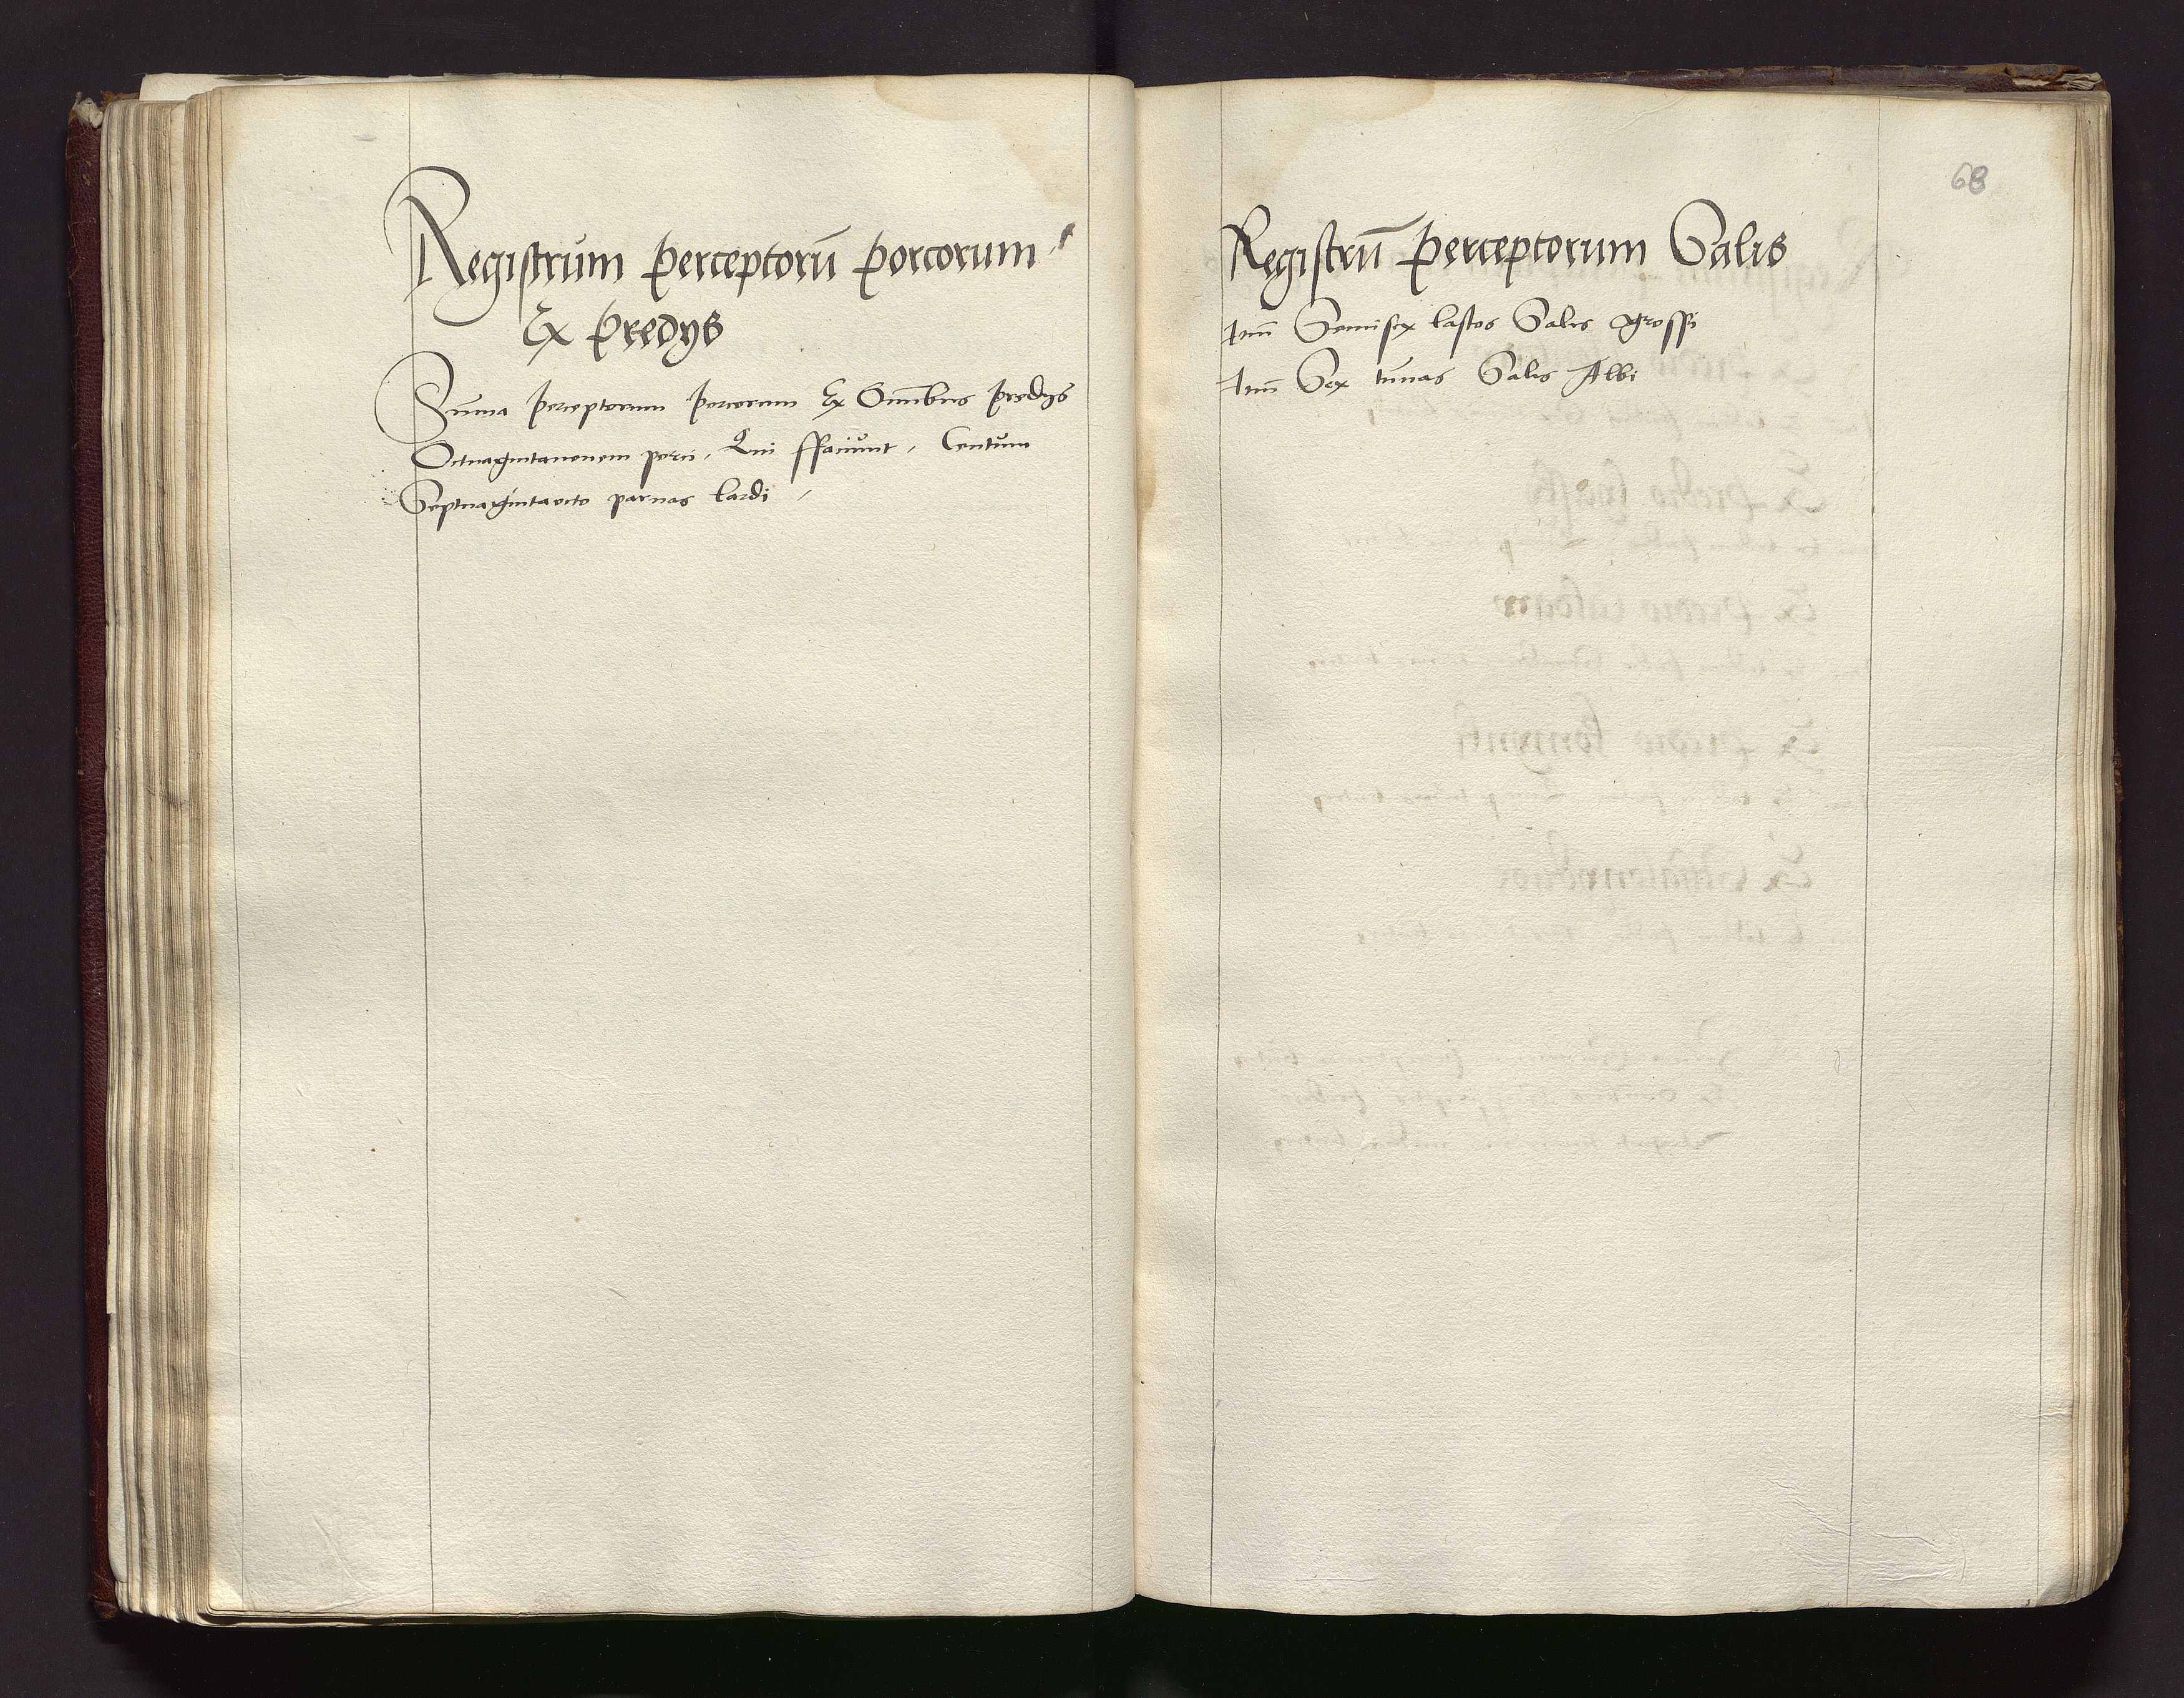 Registrum perceptorū porcorum
Ex predys
Sūma perceptorum porcorum Ex Omībus predys
Octuagintanouem porci, Qui ffaciunt, Centum
Septuagintaocto parnas lardi,
68
Registrū perceptorum Salis
Itm̄ Semisex lastos Salis grossi
Itm̄ Sex tūnas Salis Albi